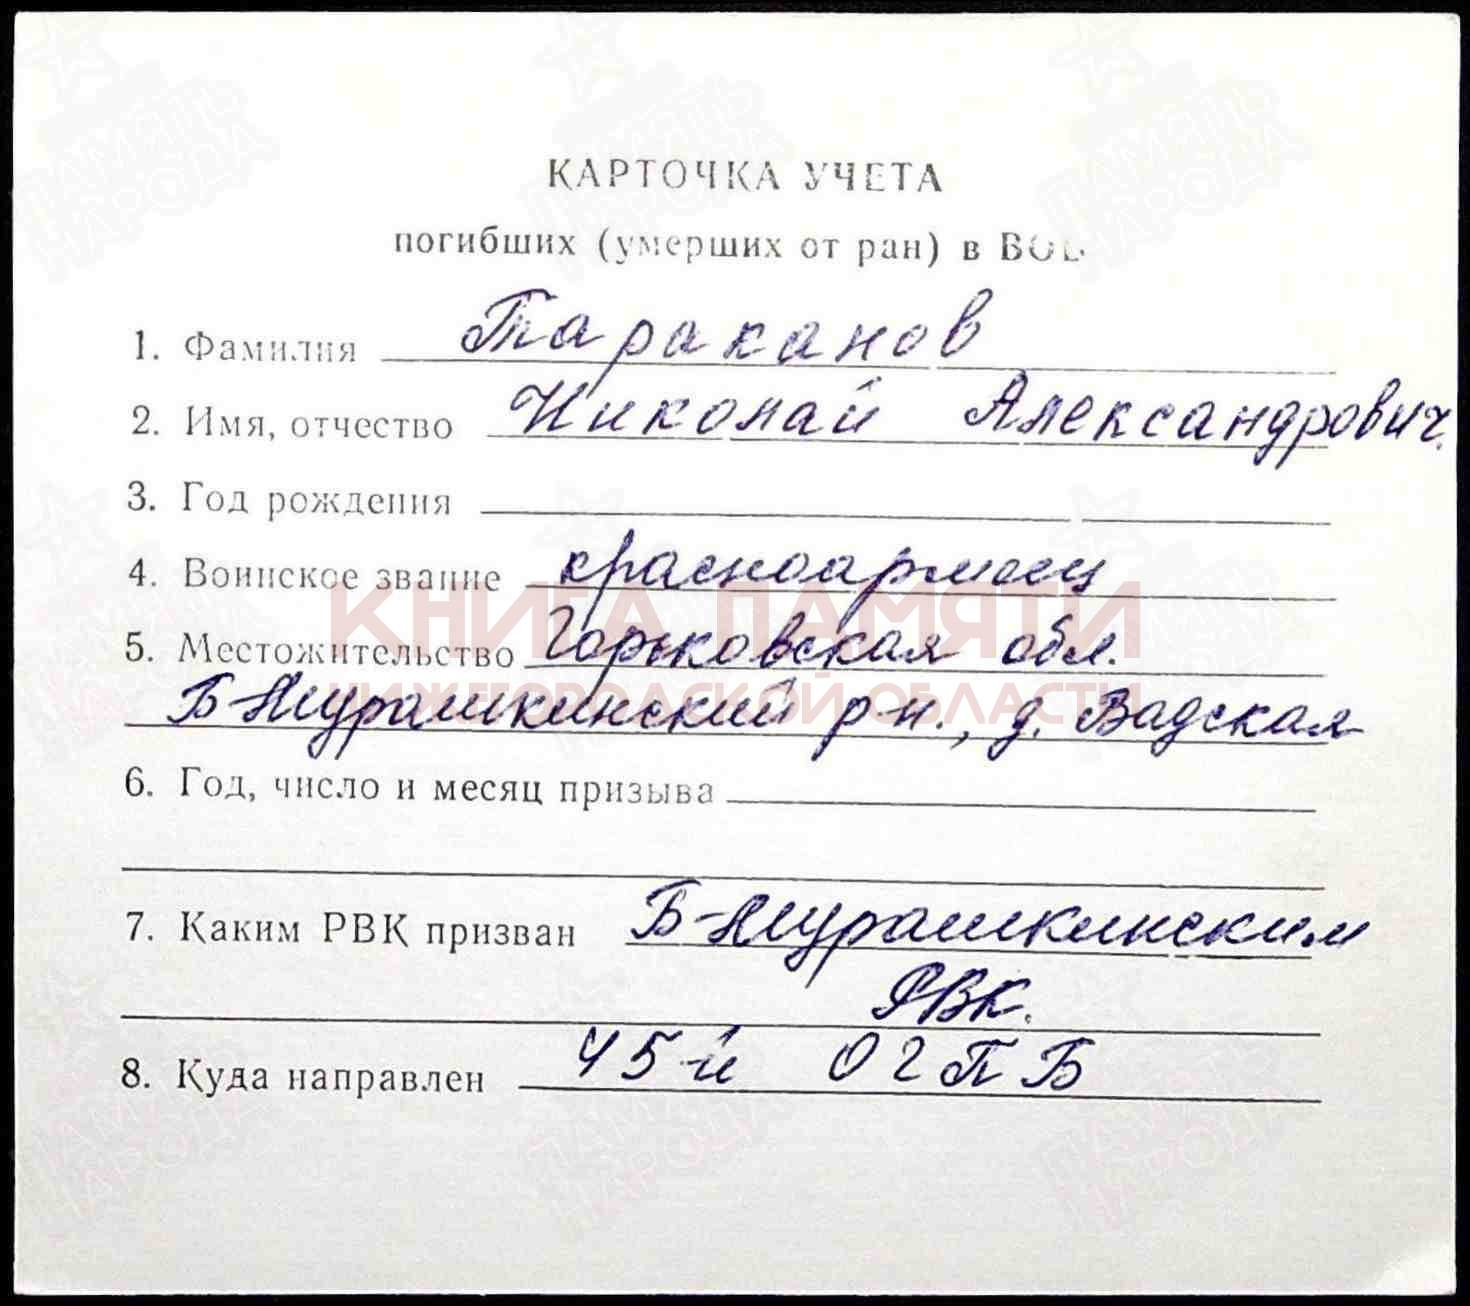 КАРТОЧКА УЧЕТА
погибших (умерших от ран) в ВОВ
1. Фамилия Тараканов
2. Имя, отчество Николай Александрович.
3. Год рождения
4. Воинское звание красноармеец
КНИГА ПАМЯТИ
5. Местожительство Горьковская обл.
НИЖЕГОРОДСКОЙ ОБЛАСТИ
Б-Мурашкинский р-н., д. Вадская
6. Год, число и месяц призыва
7. Каким РВК призван Б-Мурашкинским
РВК.
8. Куда направлен 45-й ОГПБ